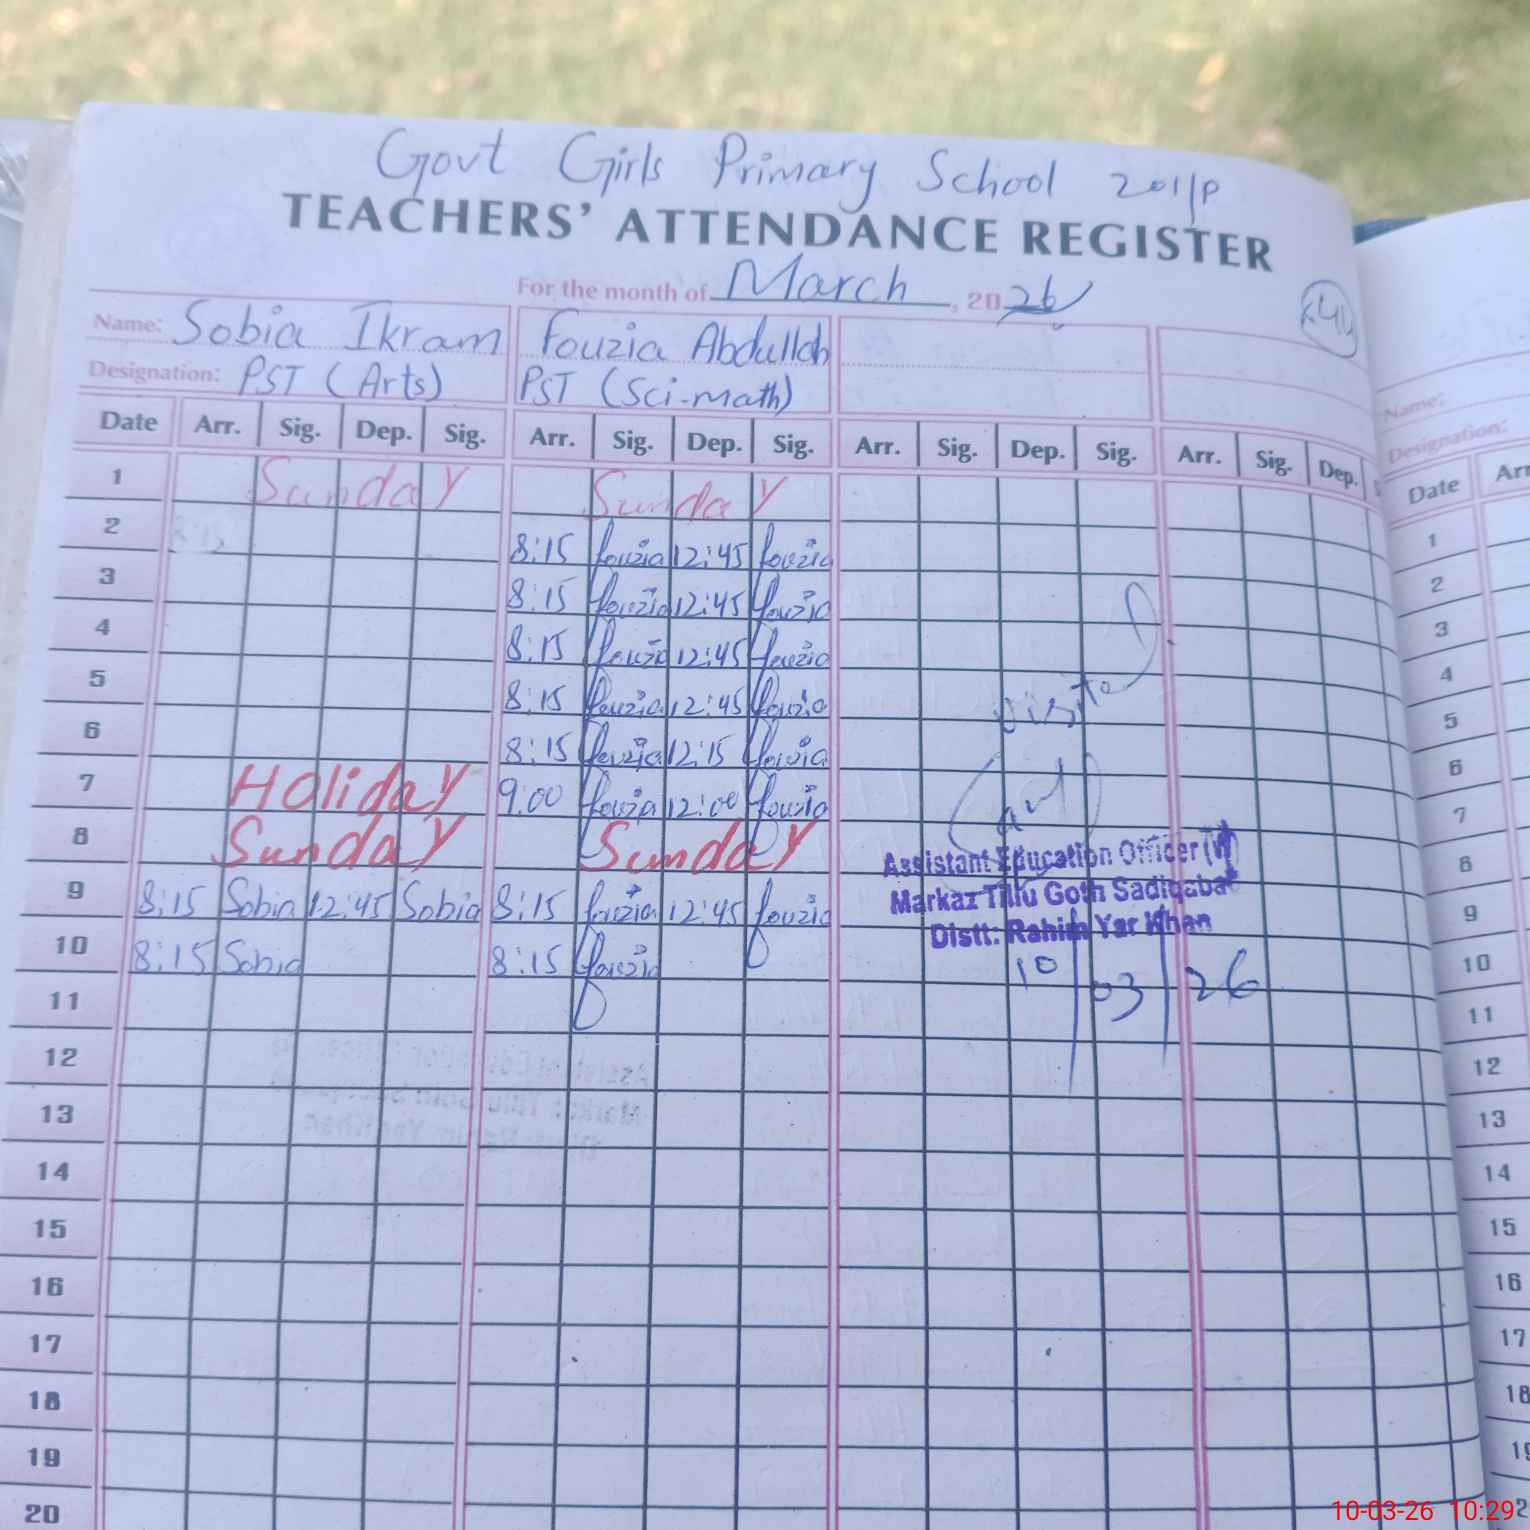 Govt Girls Primary School 201/P
TEACHERS' ATTENDANCE REGISTER
For the month of March, 2026
Name: Sobia Ikram Fouzia Abdullah
Designation: PST (Arts) PST (Sci-math)
Date Arr. Sig. Dep. Sig. Arr. Sig. Dep. Sig. Arr. Sig. Dep. Sig. Arr. Sig. Dep.
1 Sunday Sunday
2 8:15 fouzia 12:45 fouzia
3 8:15 fouzia 12:45 fouzia
4 8:15 fouzia 12:45 fouzia
5 8:15 fouzia 12:45 fouzia
6 8:15 fouzia 12:15 fouzia
7 Holiday 9:00 fouzia 12:00 fouzia
8 Sunday Sunday
9 8:15 Sobia 12:45 Sobia 8:15 fouzia 12:45 fouzia
10 8:15 Sobia 8:15 fouzia
11
12
13
14
15
16
17
18
19
20
Visited
Assistant Education Officer (W)
Markaz Tillu Goth Sadiqabad
Distt: Rahim Yar Khan
10/03/26
Name:
Designation:
Date Arr
1
2
3
4
5
6
7
8
9
10
11
12
13
14
15
16
17
18
10-03-26 10:29